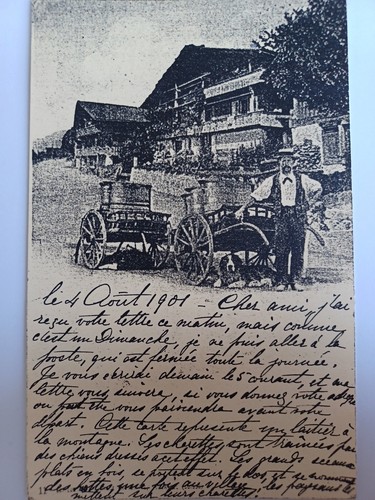 le 4 Août 1901 - Cher ami, j'ai
reçu votre lettre ce matin, mais comme
c'est un Dimanche, je ne puis aller à la
poste, qui est fermée toute la journée.
Je vous écrirai demain le 5 courant, et ma
lettre vous, si vous donnez votre
ou vous parviendra avant votre
départ. Cette carte représente un laitier à
la montagne. Les charettes sont traînées par
des chiens dressés. Les grands sceaux
plats en bois, se portent sur le dos, et se nomment
des une fois au les paysans les
mettent sur leurs charettes.